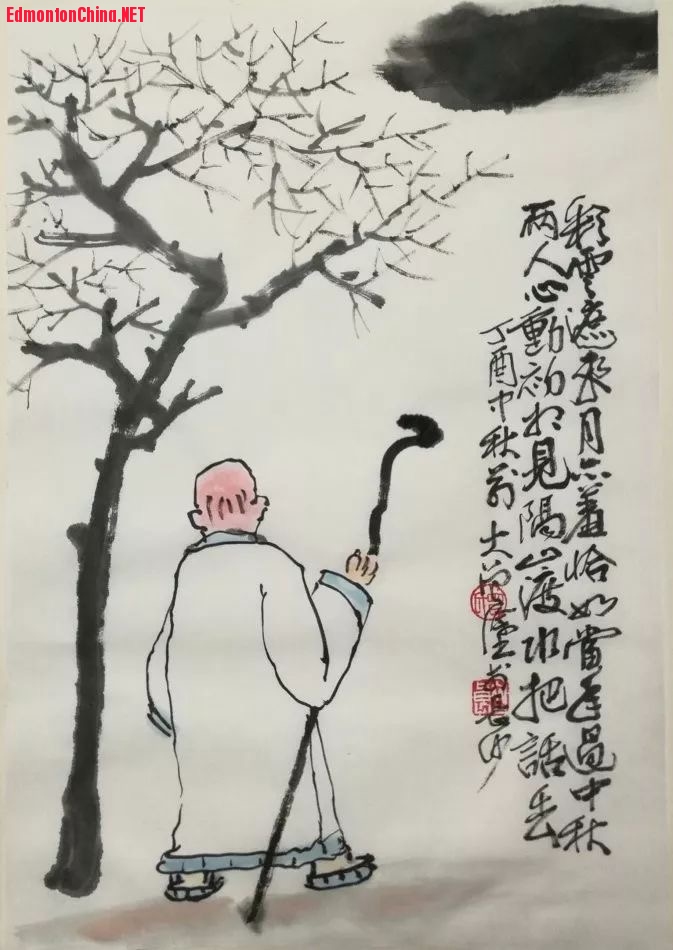 EdmontonChina.NET
彩雲遮来月亦羞恰如當年過中秋
两人心動初相見隔山渡水把話丢
丁酉中秋前大
書長沙